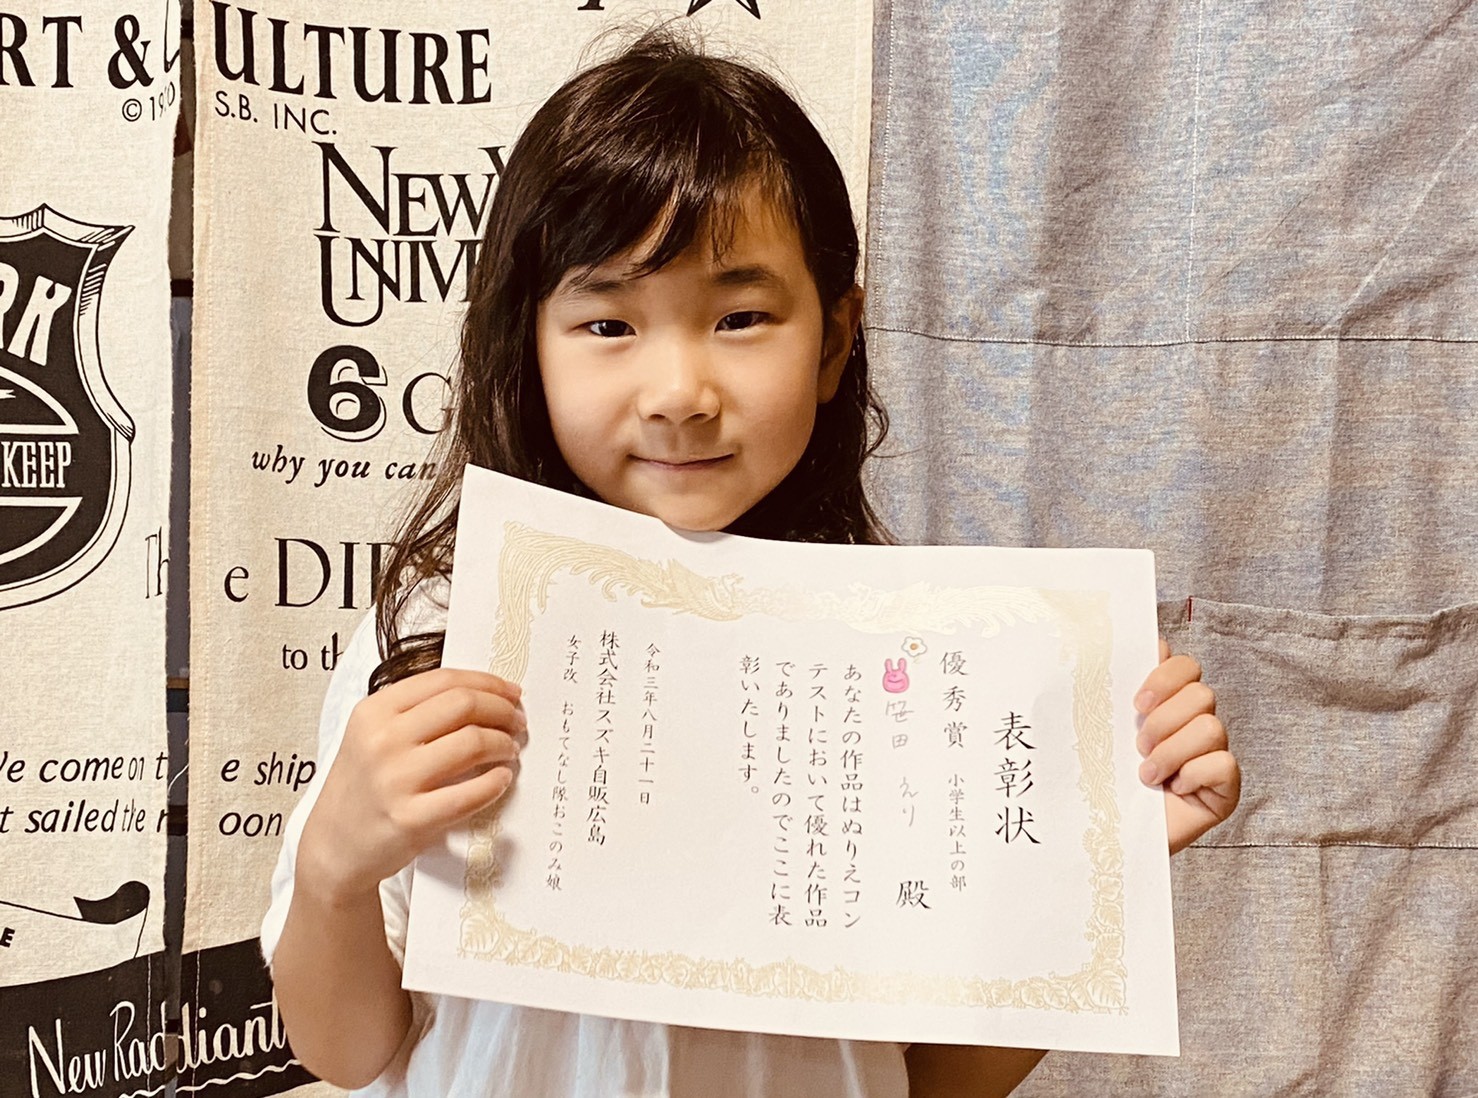 RT & C
ULTURE
© 19
S.B. INC.
NEW Y
UNIV
6 G
why you can
RK
KEEP
Th
e DI
to th
e come on t
e ship
t sailed the
oon
E
New Rad
diant
表彰状
優秀賞 小学生以上の部
笹田 えり 殿
あなたの作品はぬりえコン
テストにおいて優れた作品
でありましたのでここに表
彰いたします。
令和三年八月二十一日
株式会社スズキ自販広島
女子改 おもてなし隊おこのみ娘